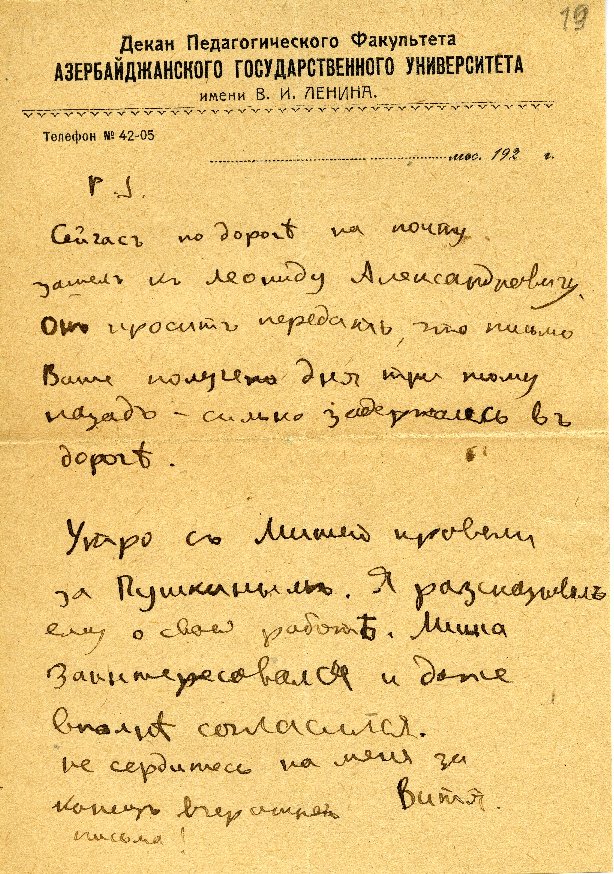 19
Декан Педагогического Факультета
АЗЕРБАЙДЖАНСКОГО ГОСУДАРСТВЕННОГО УНИВЕРСИТЕТА
имени В. И. ЛЕНИНА.
Телефон № 42-05
мес. 192 г.
P. S.
Сейчасъ по дорогѣ на почту
зашелъ къ Леониду Александровичу.
Онъ проситъ передать, что письмо
Ваше получено дня три тому
назадъ – сильно задержалось въ
дорогѣ.
Утро съ Мишей провели
за Пушкинымъ. Я разсказывалъ
ему о своей работѣ. Миша
Заинтересовался и даже
вполнѣ согласился.
не сердитесь на меня за
конецъ вчерашнего Витя.
письма!